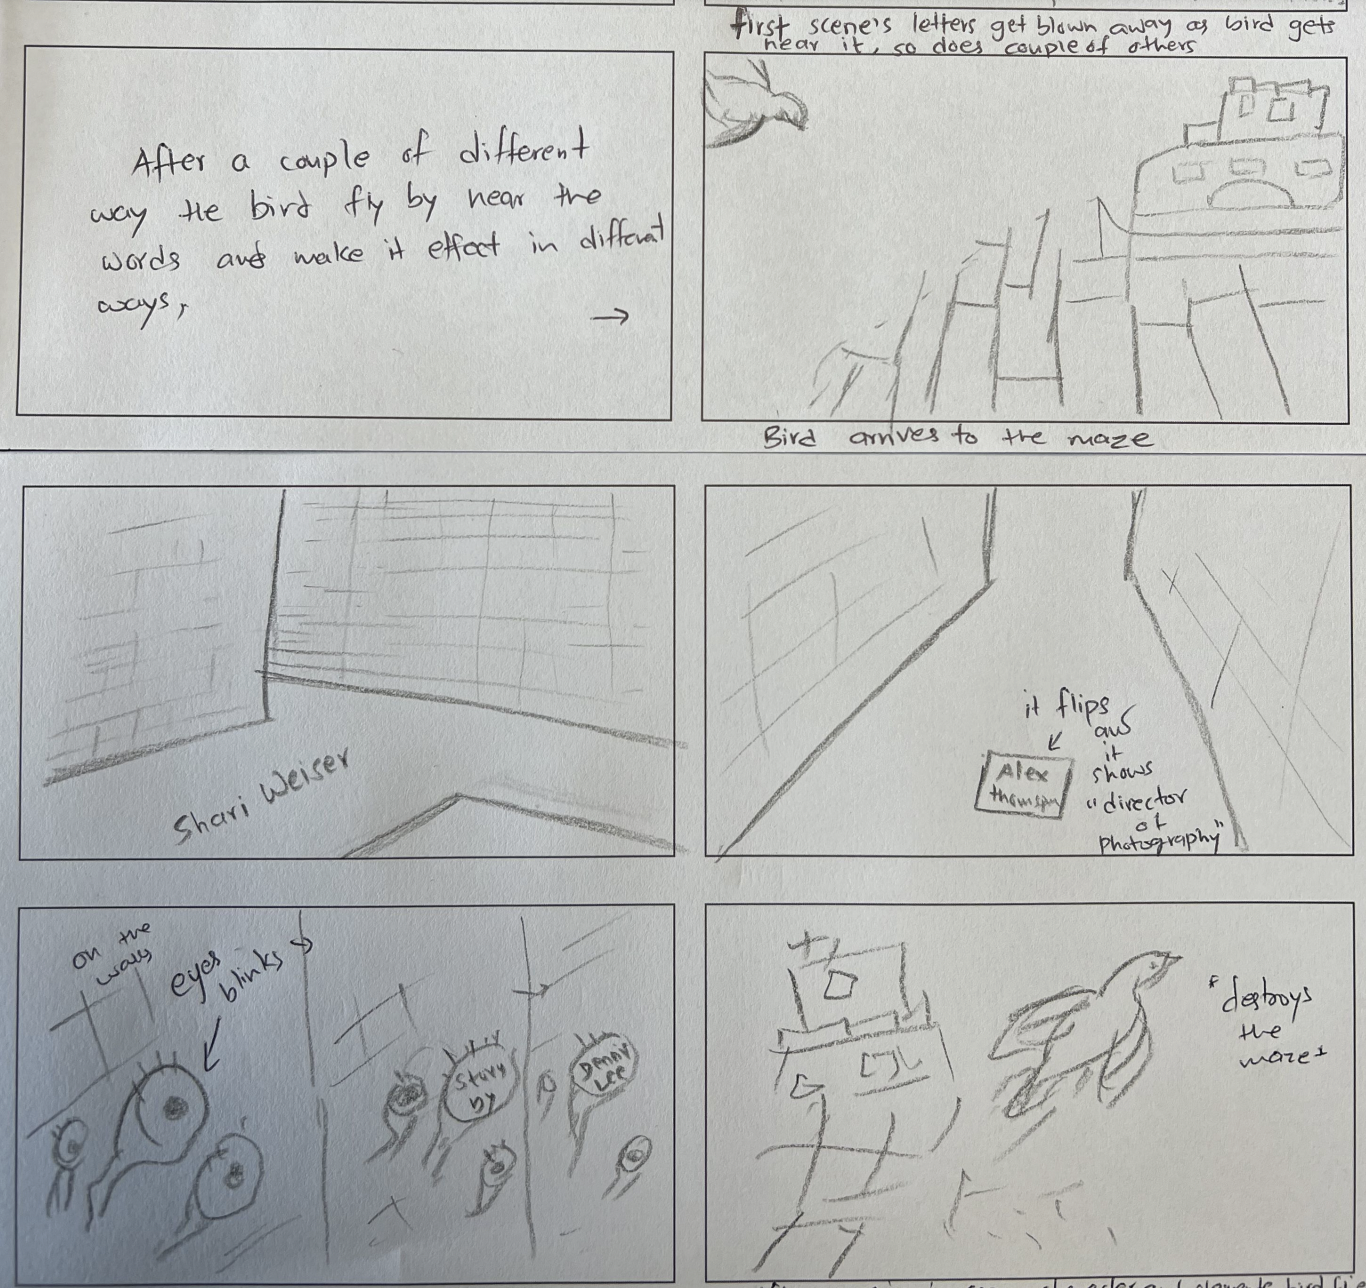 first scene's letters get blown away as bird gets
near it, so does couple of others
After a couple of different
way the bird fly by near the
words and make it effect in different
ways,
→
Bird arrives to the maze
Shari Weiser
it flips
and
it
shows
"director
of
photography"
Alex
thomson
on the
walls
eyes
blinks →
Story
by
Danny
Lee
*destroys
the
maze*